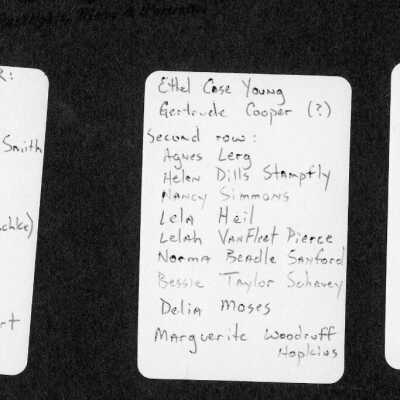 R:
Smith
Ethel Case Young
Gertrude Cooper (?)
Second row:
Agnes Lerg
Helen Dills Stampfly
Nancy Simmons
Lela Heil
Lelah VanFleet Pierce
Norma Beadle Sanford
Bessie Taylor Schavey
Delia Moses
Marguerite Woodruff
Hopkins